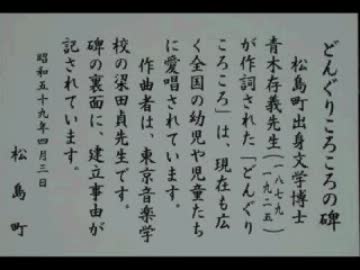 どんぐりころころの碑
松島町出身文学博士
青木存義先生(一八七九
一九二五)
が作詞された「どんぐり
ころころ」は、現在も広
く全国の幼児や児童たち
に愛唱されています。
作曲者は、東京音楽学
校の梁田貞先生です。
碑の裏面に、建立事由が
記されています。
昭和五十九年四月三日
松島町